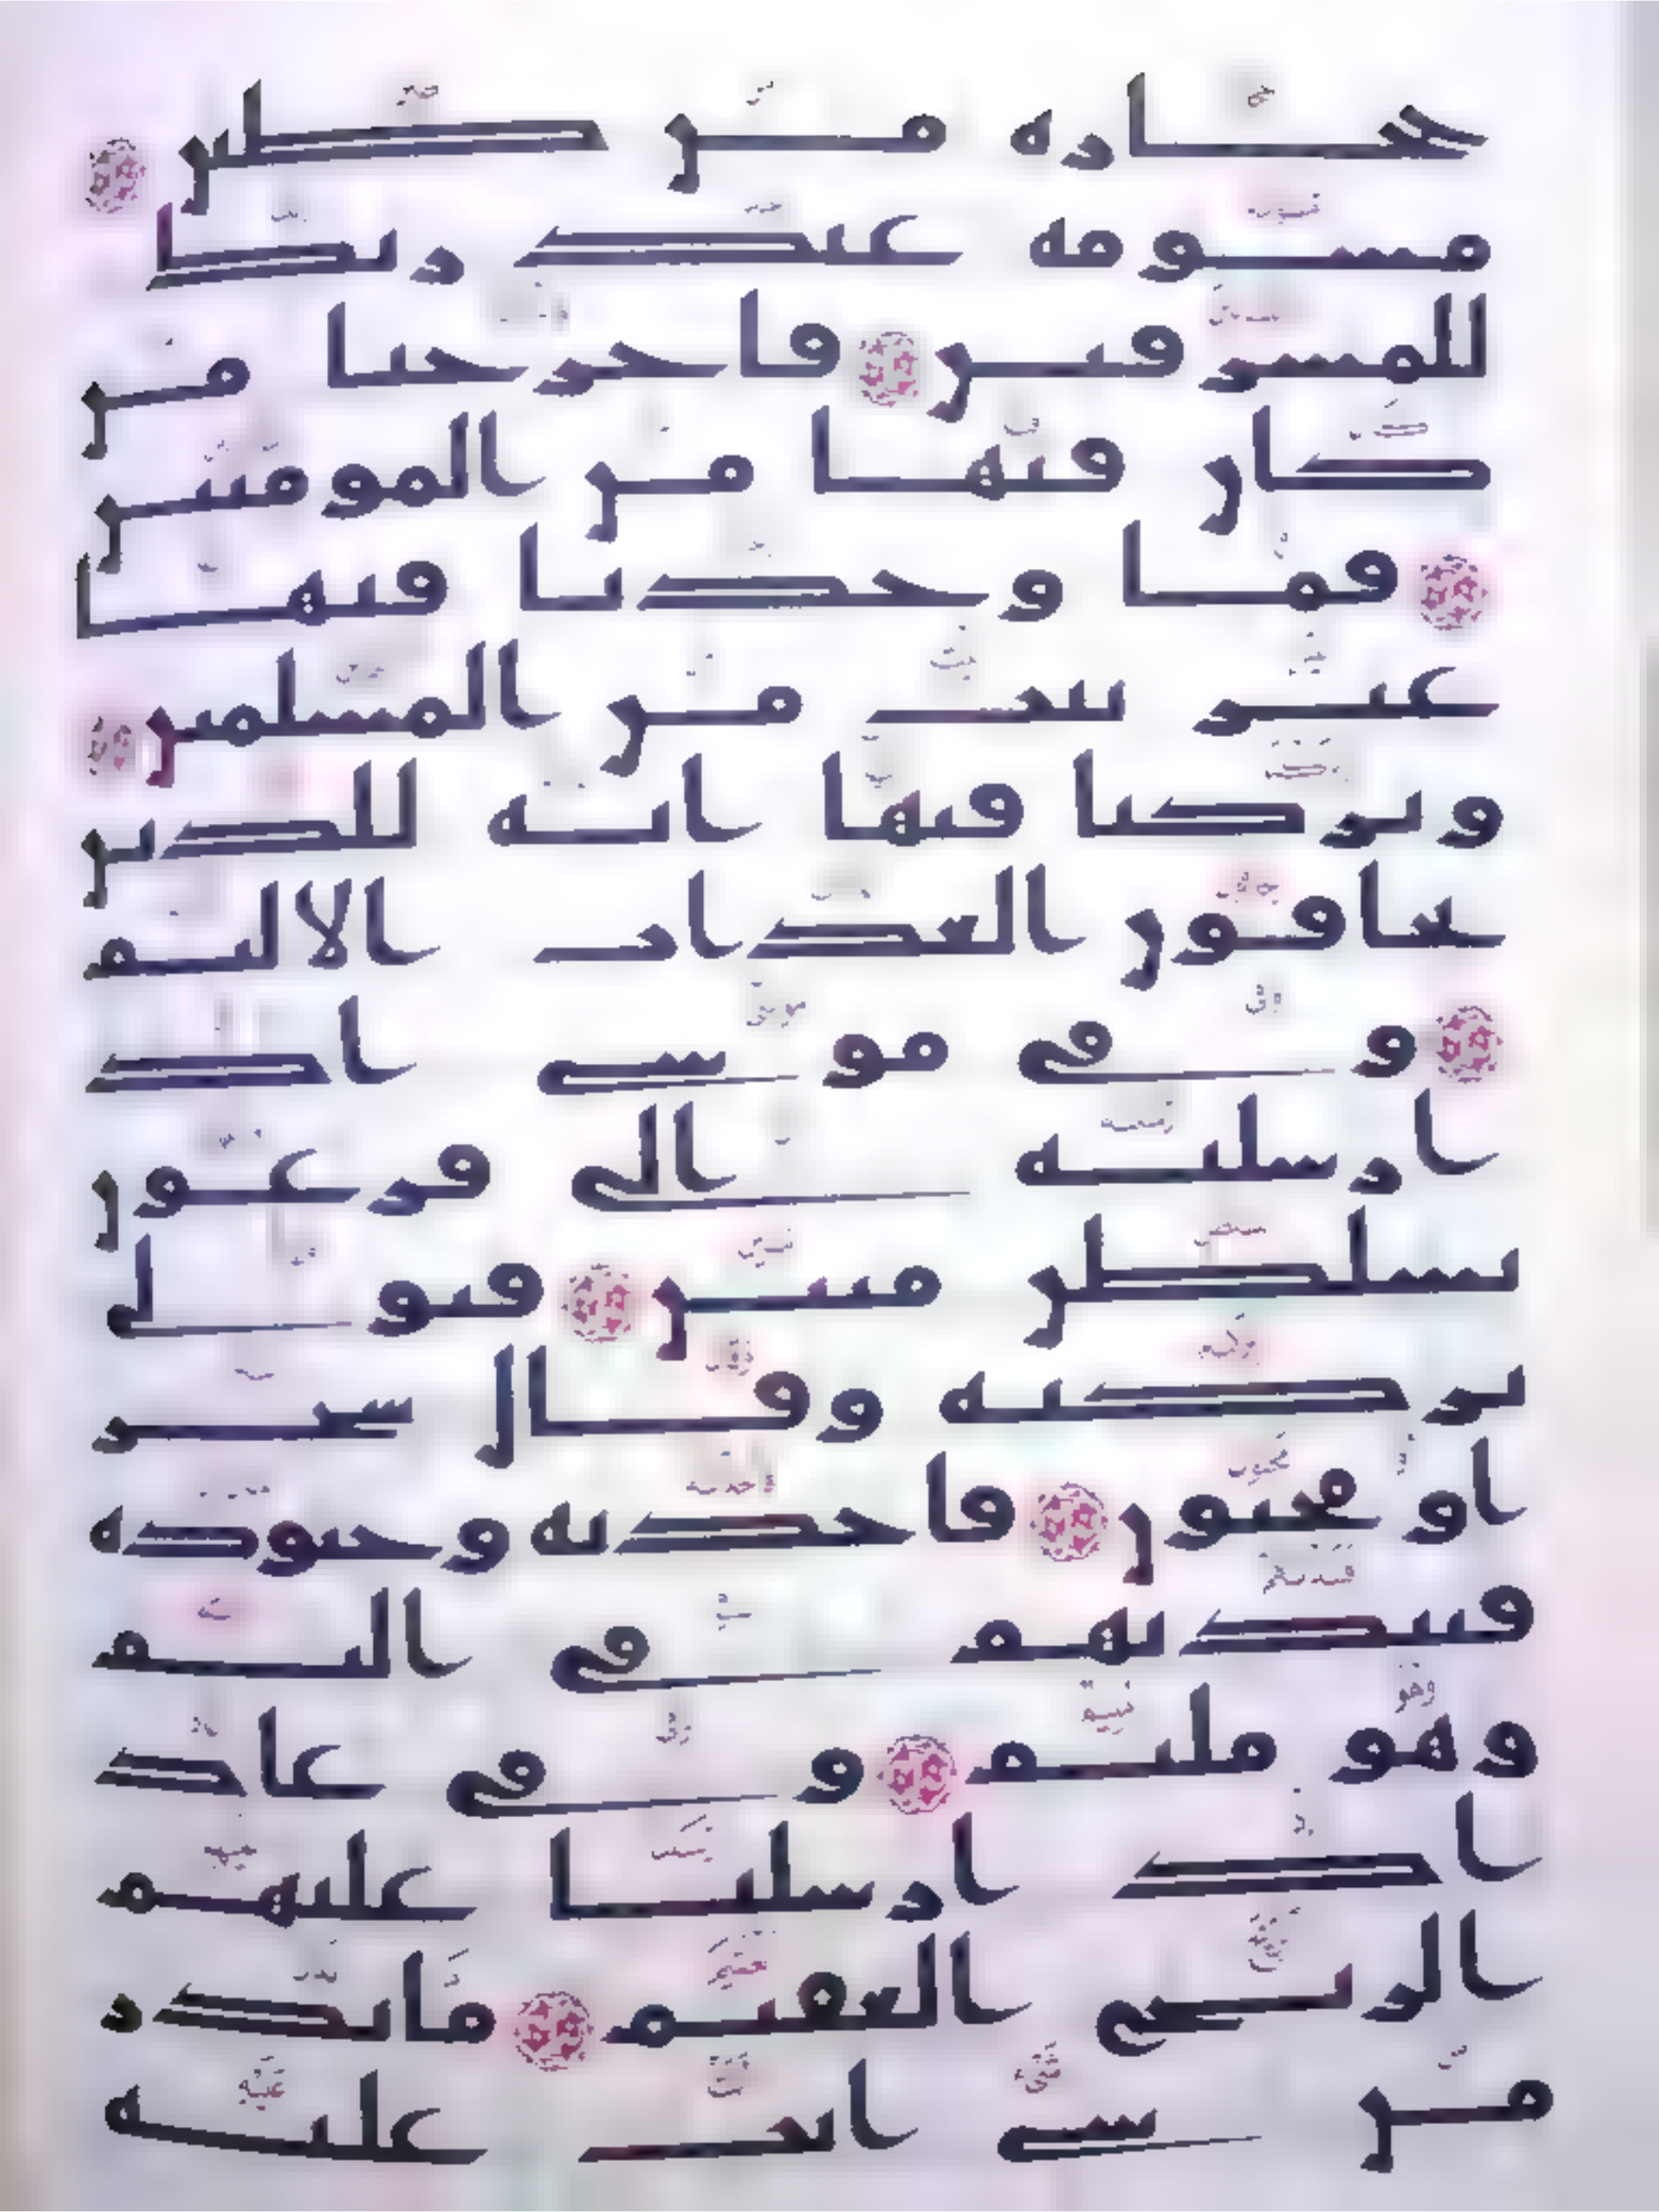 حجارة من طين
مسومة عند ربك
للمسرفين فاخرجنا من
كان فيها من المومنين
فما وجدنا فيها
غير بيت من المسلمين
وتركنا فيها اية للذين
يخافون العذاب الاليم
وفي موسى اذ
ارسلنه الى فرعون
بسلطن مبين فتولى
بركنه وقال سحر
او مجنون فاخذنه وجنوده
فنبذنهم في اليم
وهو مليم وفي عاد
اذ ارسلنا عليهم
الريح العقيم ما تذر
من شي اتت عليه